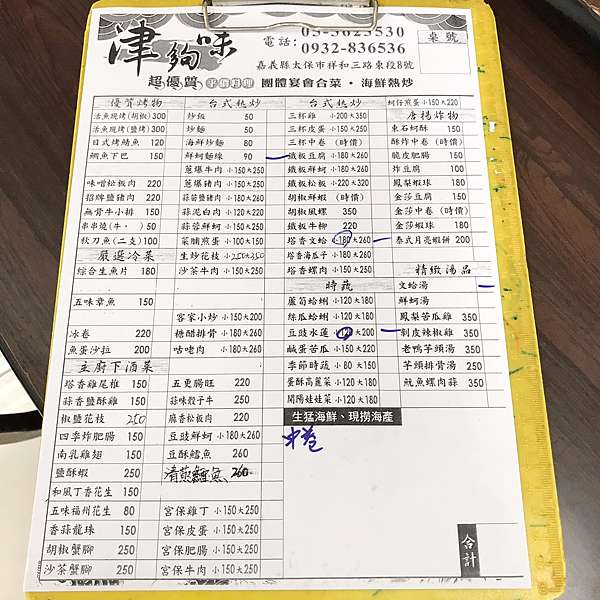 津夠味
超優質 平價料理 團體宴會合菜・海鮮熱炒
電話：05-3623530
0932-836536
嘉義縣太保市祥和三路東段8號
桌號
優質烤物
活魚現烤(胡椒)300
活魚現烤(鹽烤)300
日式烤鯖魚 120
鯛魚下巴 150
味噌松板肉 220
招牌鹽豬肉 220
無骨牛小排 150
串串燒(牛， )50
秋刀魚(二支)100
嚴選冷菜
綜合生魚片 180
五味章魚 150
冰卷 220
魚蛋沙拉 200
主廚下酒菜
塔香雞尾椎 150
蒜香鹽酥雞 150
椒鹽花枝 250
四季炸肥腸 150
南乳雞翅 150
鹽酥蝦 250
和風丁香花生 150
五味福州花生 80
香蒜龍珠 150
胡椒蟹腳 250
沙茶蟹腳 250
台式熱炒
炒飯 50
炒麵 50
海鮮炒麵 80
鮮蚵麵線 90
蔥爆牛肉 小150大250
蔥爆豬肉 小150大250
蒜苗鹽豬肉 小180大260
蒜泥白肉 小120大220
蒜蓉鮮蚵 小150大250
菜脯煎蛋 小100大150
生炒花枝 小250大350
沙茶牛肉 小150大250
客家小炒 小150大200
糖醋排骨 小180大260
咕咾肉 小180大260
五更腸旺 220
蒜味骰子牛 250
麻香松板肉 220
豆豉鮮蚵 小180大260
豆酥鱈魚 260
清蒸鱸魚 260
宮保雞丁 小150大250
宮保皮蛋 小150大250
宮保肥腸 小150大250
宮保牛肉 小150大250
台式熱炒
三杯雞 小200大350
三杯皮蛋 小150大250
三杯中卷 (時價)
鐵板豆腐 小180大260
鐵板鮮蚵 小180大260
鐵板松板 小220大320
胡椒鮮蝦 (時價)
胡椒風螺 350
鐵板牛柳 220
塔香文蛤 小180大260
塔香海瓜子 小180大260
塔香螺肉 小150大250
時蔬
蘆筍蛤蜊 小120大180
絲瓜蛤蜊 小120大180
豆豉水蓮 小120大200
鹹蛋苦瓜 小150大220
季節時蔬 小80大150
蛋酥高麗菜 小120大180
開陽娃娃菜 小120大180
生猛海鮮、現撈海產
中卷
蚵仔煎蛋 小150大220
唐揚炸物
東石蚵酥 150
酥炸中卷 (時價)
脆皮肥腸 150
炸豆腐 100
鳳梨蝦球 180
金莎豆腐 150
金莎中卷 (時價)
金莎蝦球 180
泰式月亮蝦餅 200
精緻湯品
文蛤湯
鮮蚵湯
鳳梨苦瓜雞 350
剝皮辣椒雞 350
老鴨芋頭湯 350
芋頭排骨湯 250
魷魚螺肉蒜 350
合計